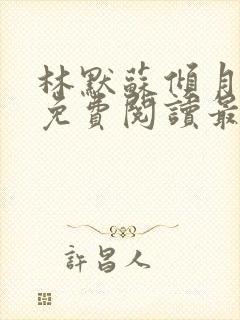 林默蘇傾月
免費閱讀最
許昌人